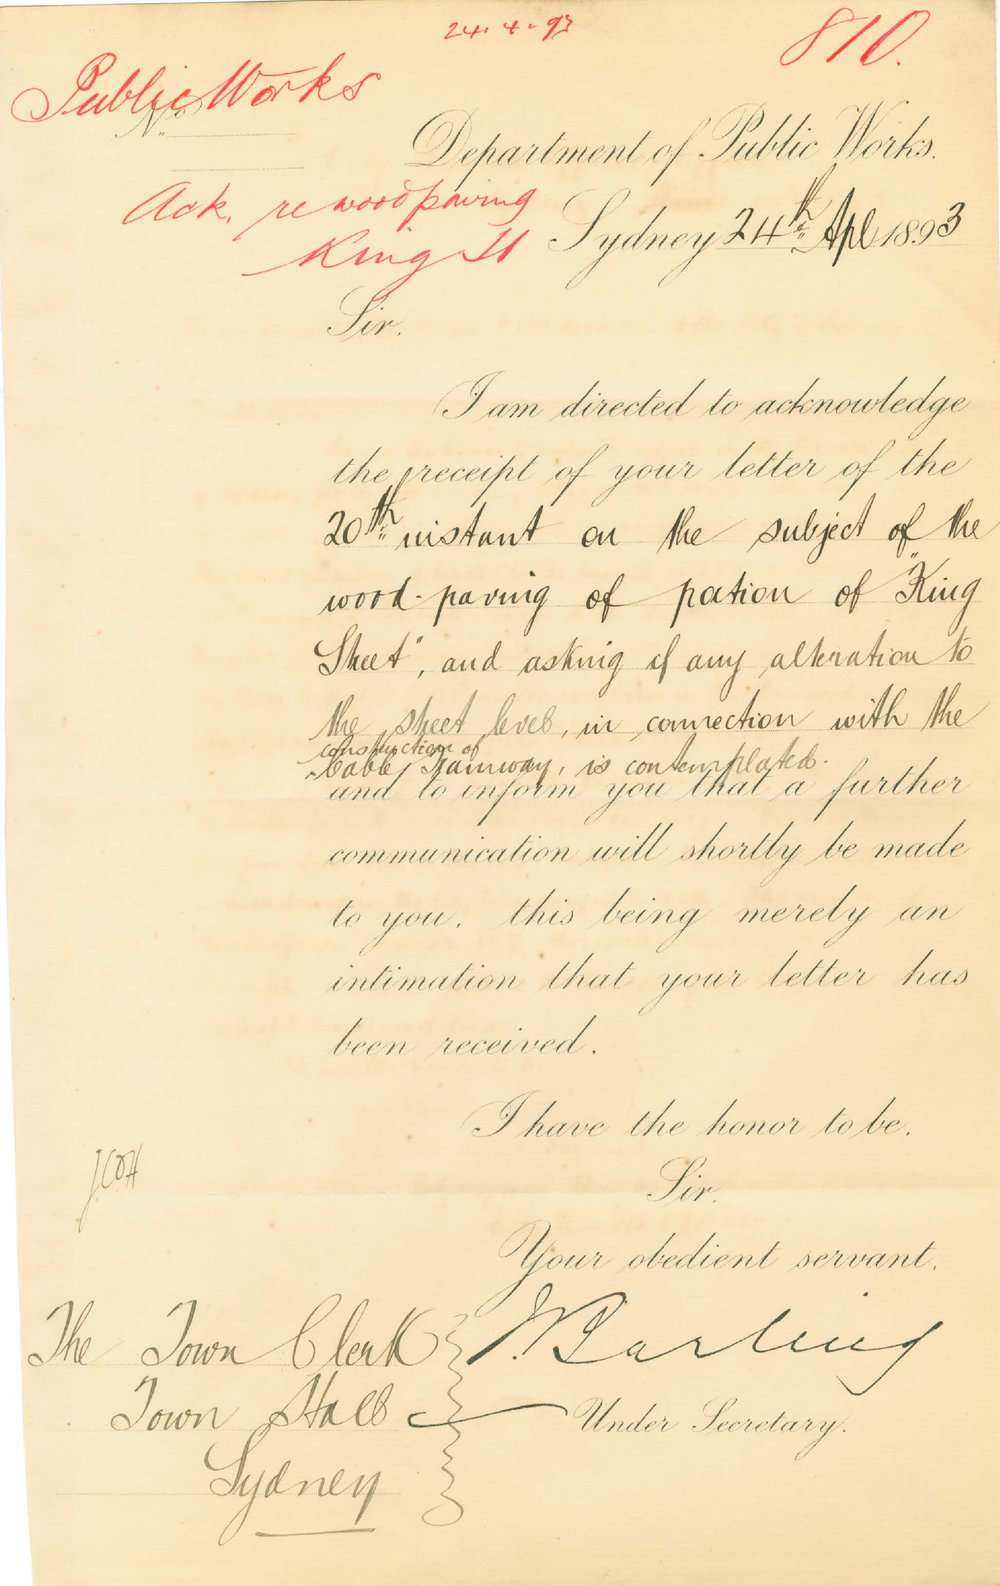 24.4.93
810.
Public Works
No.
Department of Public Works.
Ack. re woodpaving
King St
Sydney 24th Apl 1893
Sir.
I am directed to acknowledge
the receipt of your letter of the
20th instant on the subject of the
wood-paving of portion of "King
Street", and asking if any alteration to
the street levels, in connection with the
construction of
Cable Tramway, is contemplated.
and to inform you that a further
communication will shortly be made
to you, this being merely an
intimation that your letter has
been received.
I have the honor to be.
Sir.
Your obedient servant.
The Town Clerk
Town Hall
Sydney
Under Secretary.